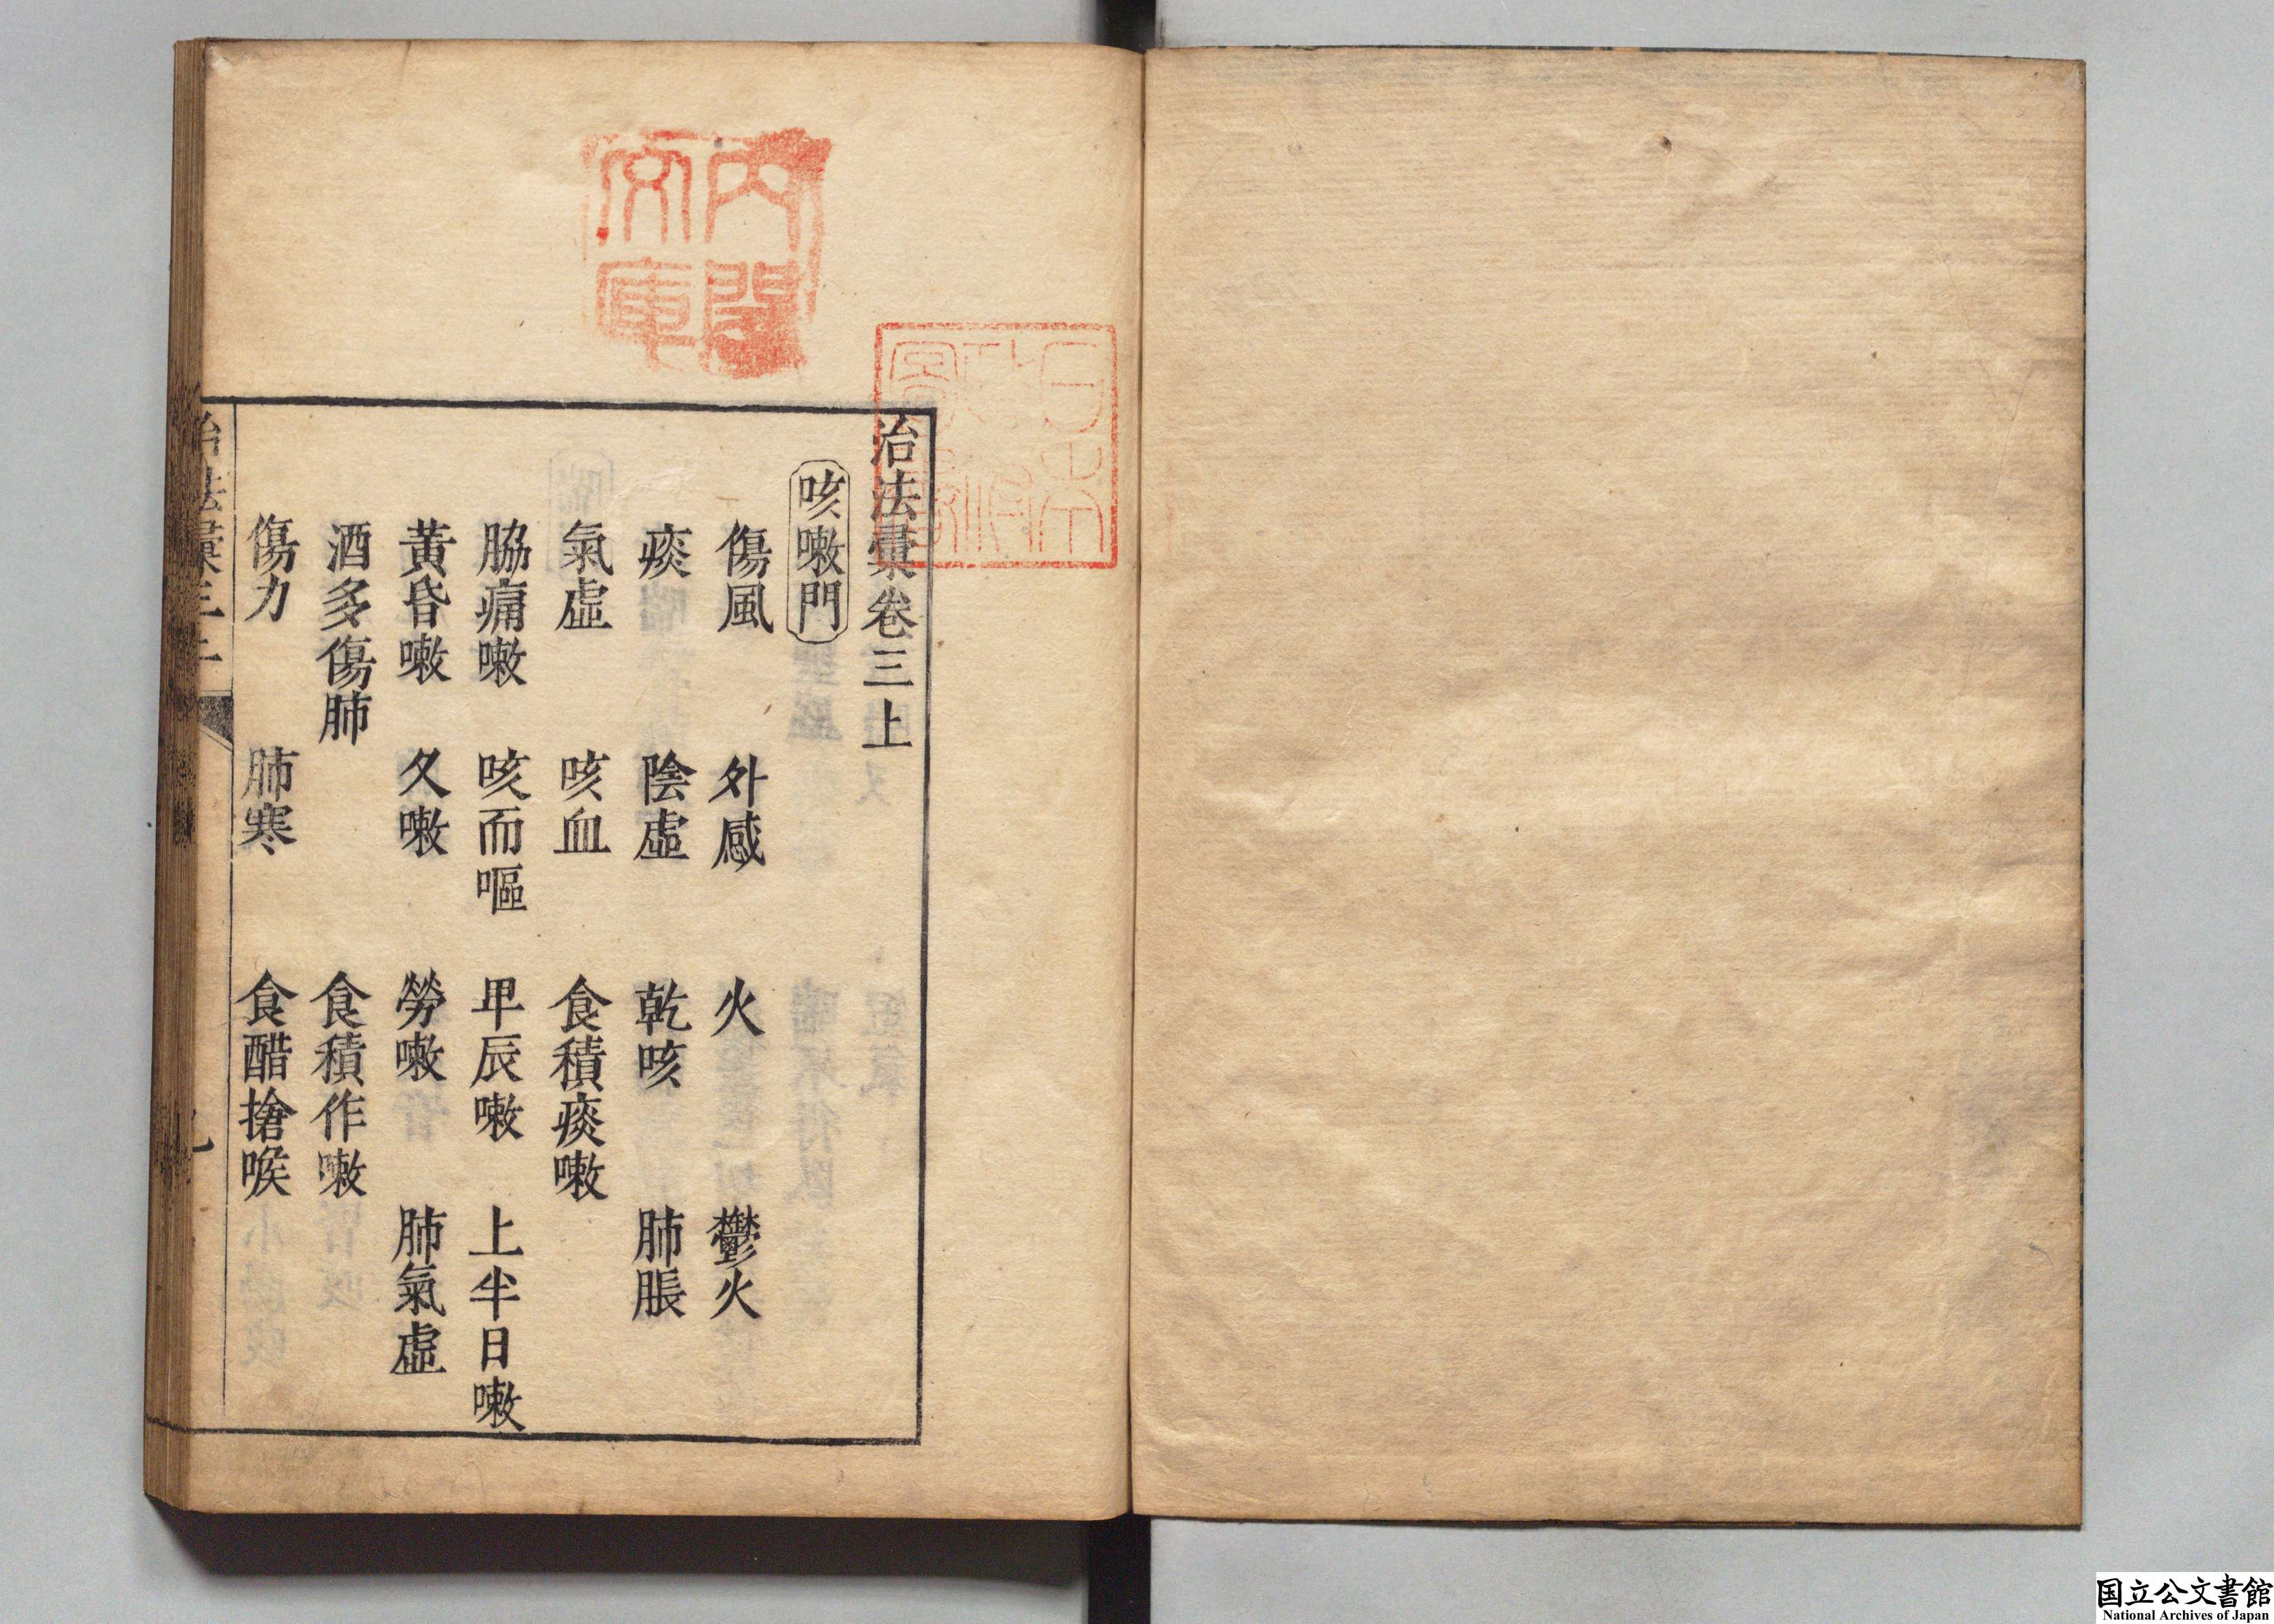 治法彙卷三上
咳嗽門
傷風　外感　火　鬱火
痰　陰虛　乾咳　肺脹
氣虛　咳血　食積痰嗽
脇痛嗽　咳而嘔　早辰嗽　上半日嗽
黃昏嗽　久嗽　勞嗽　肺氣虛
酒多傷肺　食積作嗽
傷力　肺寒　食醋搶喉
治法彙三上
內閣文庫
日本政府圖書
国立公文書館
National Archives of Japan